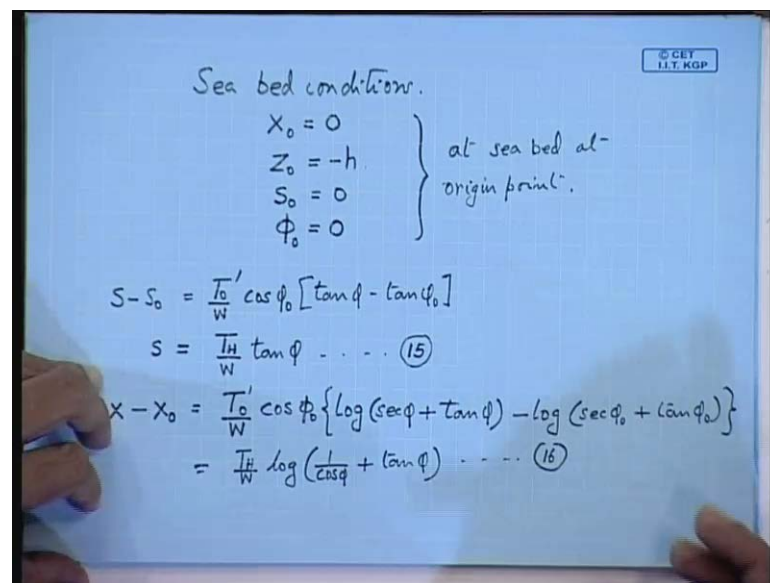 © CET
I.I.T. KGP
Sea bed conditions.
X₀ = 0
Z₀ = -h
S₀ = 0
ϕ₀ = 0
at sea bed at
origin point.
S-S₀ = T₀'/W cos φ₀ [tan φ - tan φ₀]
S = T_H/W tan φ - . . . - (15)
X - X₀ = T₀'/W cos ϕ₀ {log (sec φ + tan φ) - log (sec φ₀ + tan φ₀)}
= T_H/W log (1/cos φ + tan φ) - . . . - (16)